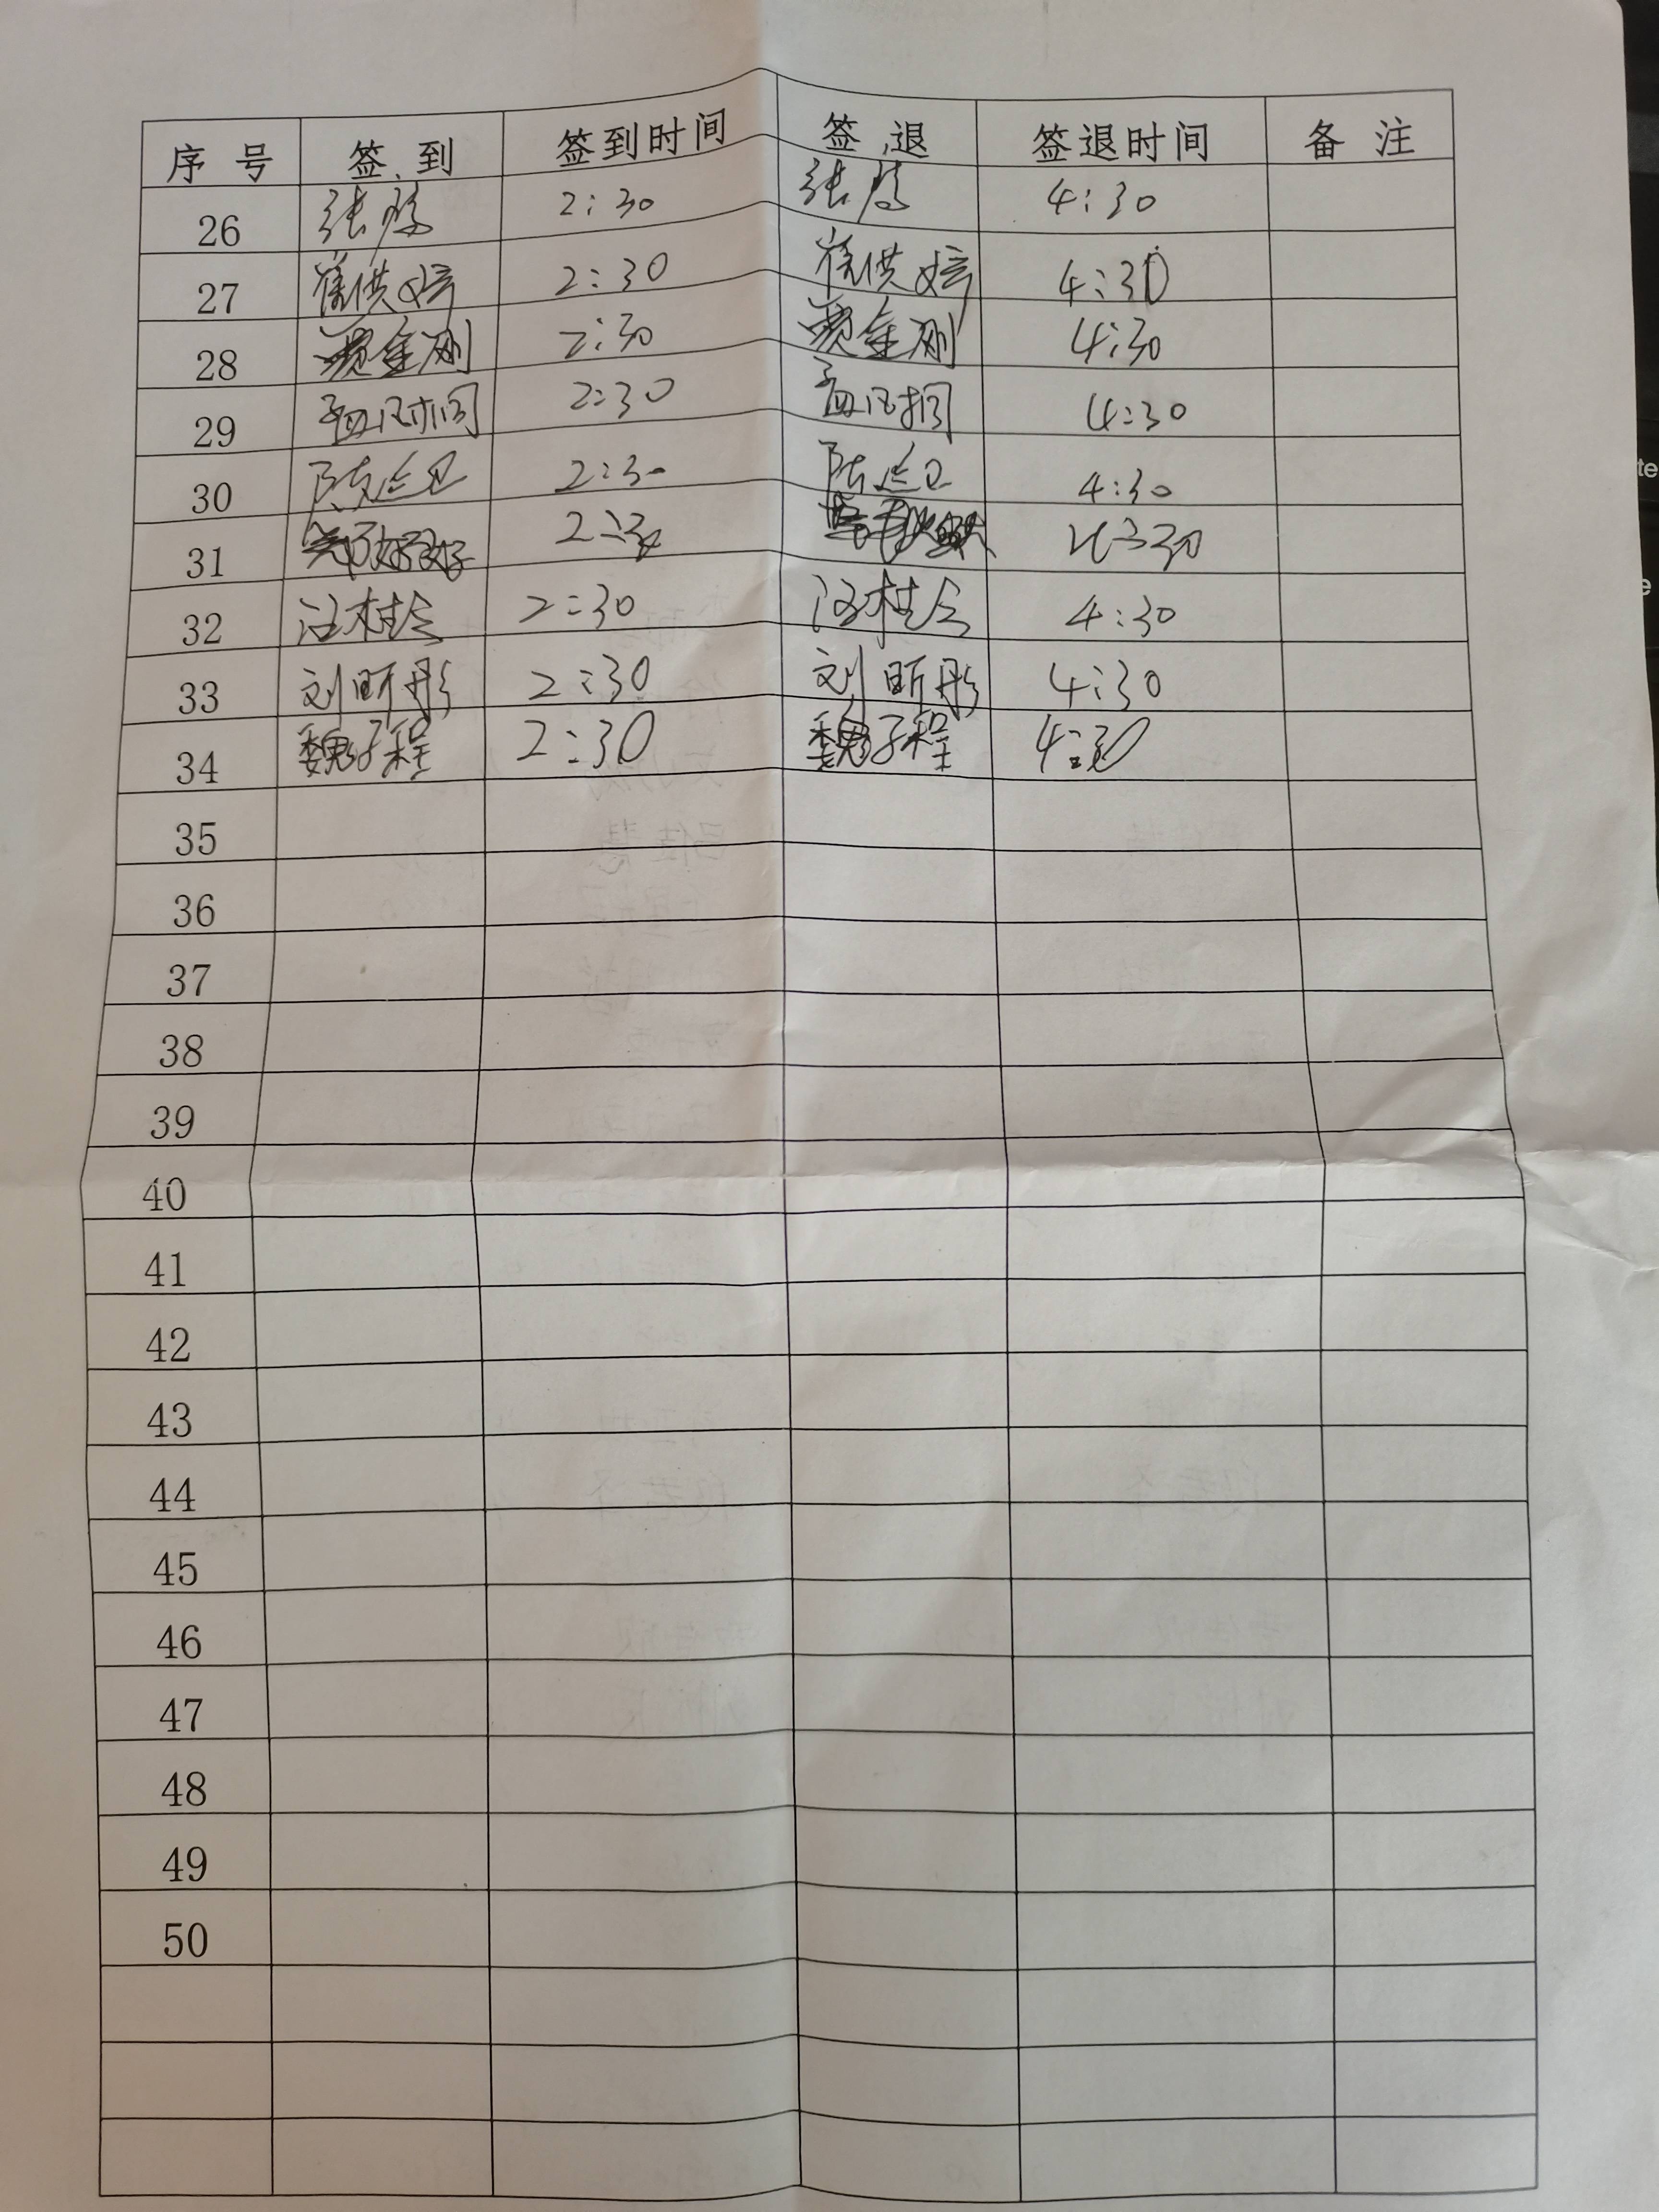 序号 签到 签到时间 签退 签退时间 备注
26 张 2:30 张 4:30
27 崔洪婷 2:30 崔洪婷 4:30
28 贾金刚 2:30 贾金刚 4:30
29 孟凡桐 2:30 孟凡桐 4:30
30 陈 2:30 陈 4:30
31 2:30 4:30
32 汪桂全 2:30 汪桂全 4:30
33 刘昕彤 2:30 刘昕彤 4:30
34 魏子程 2:30 魏子程 4:30
35
36
37
38
39
40
41
42
43
44
45
46
47
48
49
50